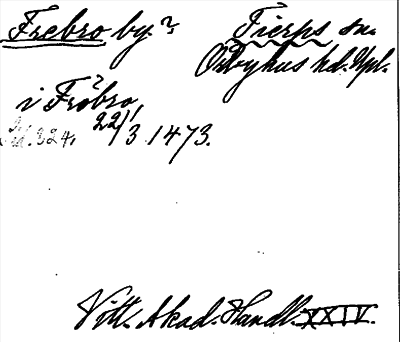 Frebro by.? Tierps sn.
Örbyhus hd. Upl.
i Fröbro,
s. 324, 22/3 1473.
Vitt. Akad. Handl. XXIV.